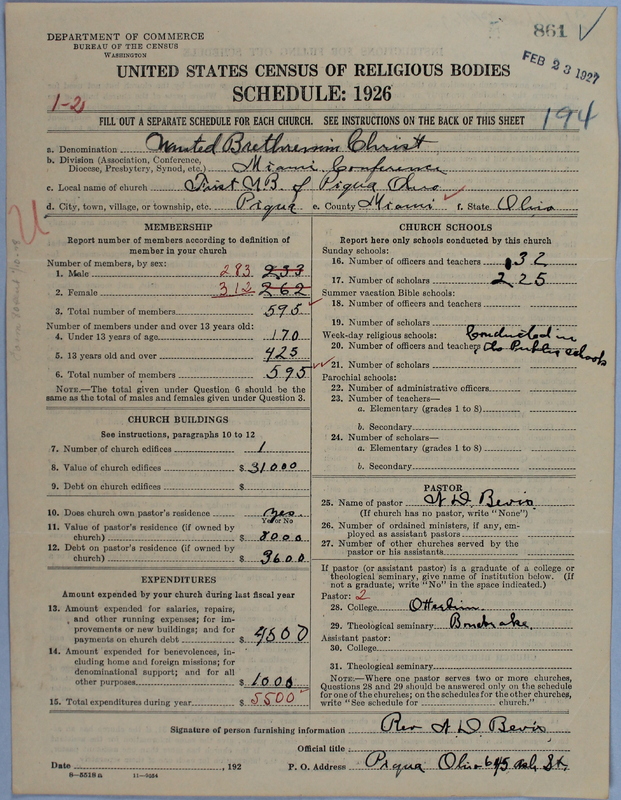 861 ✓
FEB 23 1927
DEPARTMENT OF COMMERCE
BUREAU OF THE CENSUS
WASHINGTON
UNITED STATES CENSUS OF RELIGIOUS BODIES
SCHEDULE: 1926
1-2
194
FILL OUT A SEPARATE SCHEDULE FOR EACH CHURCH. SEE INSTRUCTIONS ON THE BACK OF THIS SHEET
a. Denomination United Brethren in Christ
b. Division (Association, Conference, Diocese, Presbytery, Synod, etc.) Miami Conference
c. Local name of church First U B. of Piqua Ohio
d. City, town, village, or township, etc. Piqua e. County Miami f. State Ohio
U
MEMBERSHIP
Report number of members according to definition of
member in your church
Number of members, by sex:
1. Male 283 233
2. Female 312 262
3. Total number of members 595
Number of members under and over 13 years old:
4. Under 13 years of age 170
5. 13 years old and over 425
6. Total number of members 595
NOTE.—The total given under Question 6 should be
same as the total of males and females given under Question 3.
CHURCH BUILDINGS
See instructions, paragraphs 10 to 12
7. Number of church edifices 1
8. Value of church edifices $ 31000
9. Debt on church edifices $
10. Does church own pastor's residence yes
Yes or No
11. Value of pastor's residence (if owned by
church) $ 8000
12. Debt on pastor's residence (if owned by
church) $ 3600
EXPENDITURES
Amount expended by your church during last fiscal year
13. Amount expended for salaries, repairs,
and other running expenses; for im-
provements or new buildings; and for
payments on church debt $ 4500
14. Amount expended for benevolences, in-
cluding home and foreign missions; for
denominational support; and for all
other purposes $ 1000
15. Total expenditures during year $ 5500
CHURCH SCHOOLS
Report here only schools conducted by this church
Sunday schools:
16. Number of officers and teachers 32
17. Number of scholars 225
Summer vacation Bible schools:
18. Number of officers and teachers
19. Number of scholars
Week-day religious schools: Conducted in
20. Number of officers and teachers Public schools
21. Number of scholars
Parochial schools:
22. Number of administrative officers
23. Number of teachers—
a. Elementary (grades 1 to 8)
b. Secondary
24. Number of scholars—
a. Elementary (grades 1 to 8)
b. Secondary
PASTOR
25. Name of pastor A. D. Bevis
(If church has no pastor, write "None")
26. Number of ordained ministers, if any, em-
ployed as assistant pastors
27. Number of other churches served by the
pastor or his assistants
If pastor (or assistant pastor) is a graduate of a college or
theological seminary, give name of institution below. (If
not a graduate, write "No" in the space indicated.)
Pastor: 2
28. College Otterbein
29. Theological seminary Bonebrake
Assistant pastor:
30. College
31. Theological seminary
NOTE.—Where one pastor serves two or more churches,
Questions 28 and 29 should be answered only on the schedule
for one of the churches; on the schedules for the other churches,
write "See schedule for church."
Signature of person furnishing information Rev A. D. Bevis
Official title
Date , 192 P. O. Address Piqua Ohio 645 St.
8—5518 a 11—9164